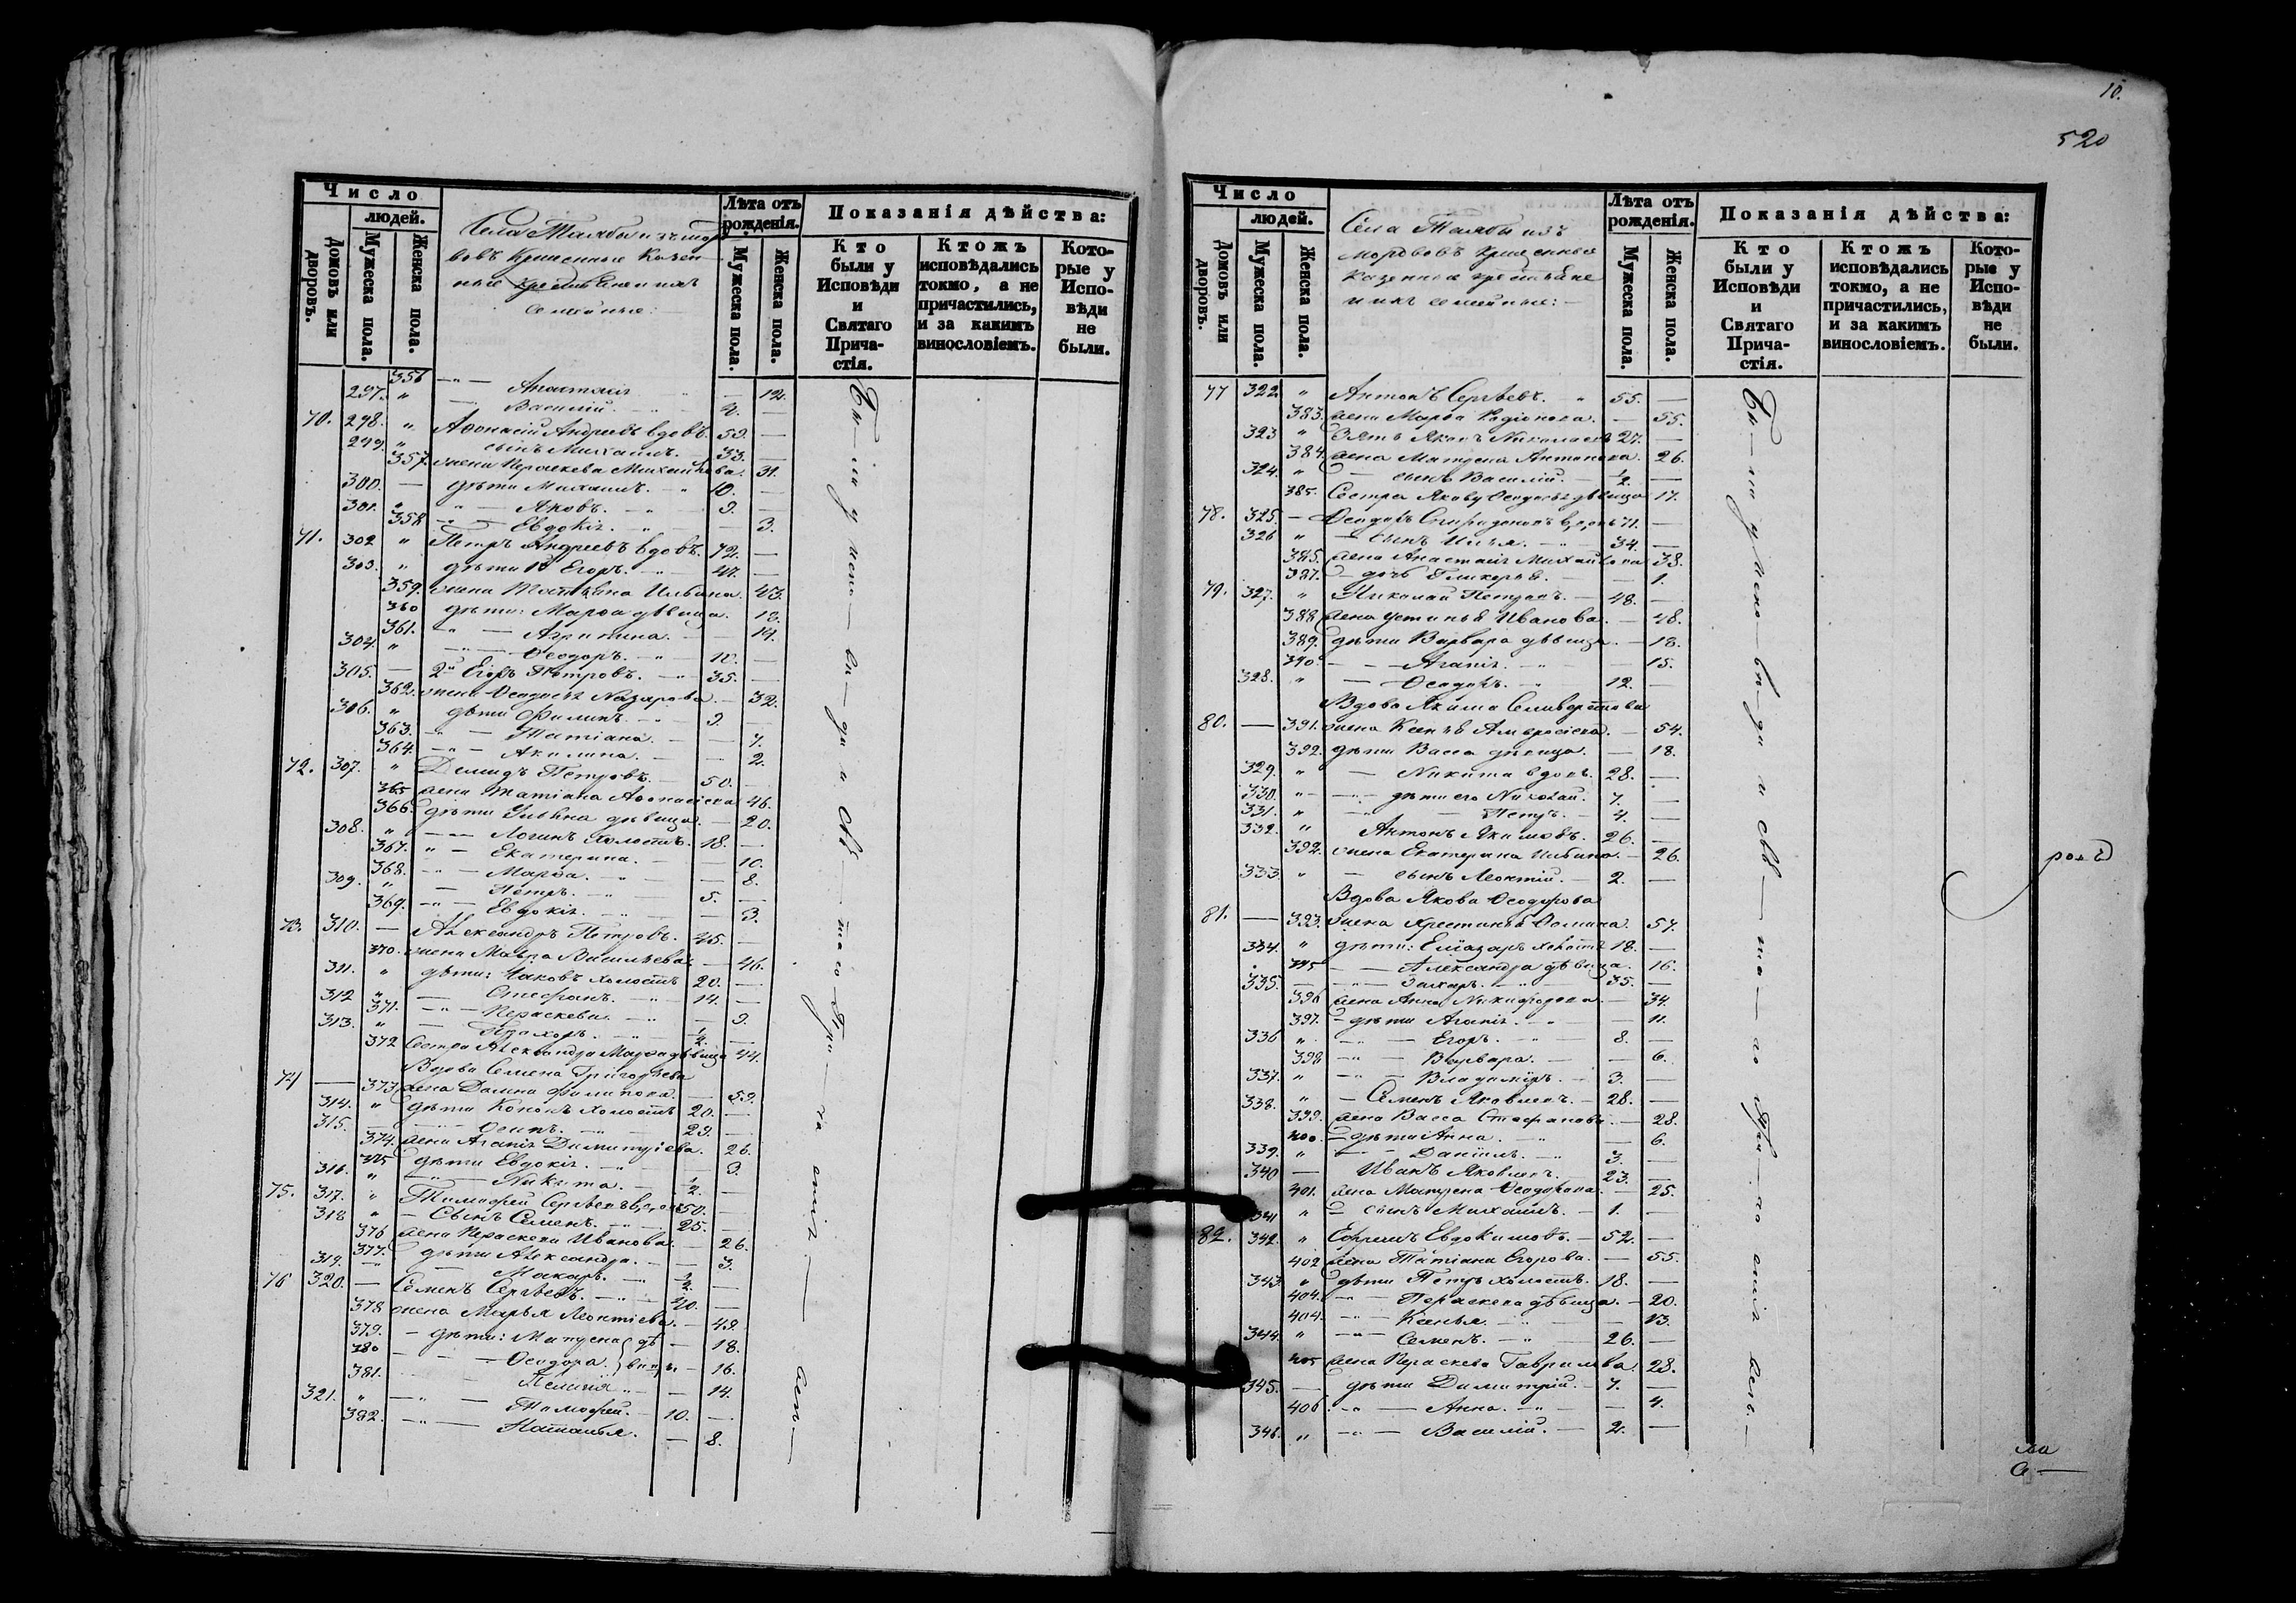 10.
520
Число
людей.
Домовъ или дворовъ.
Мужеска пола.
Женска пола.
Села Талябы изъ мор
вовъ Крещенные Казен
ные крестьяне и ихъ
семейные:
Лѣта отъ рожденія.
Мужеска пола.
Женска пола.
Показанія дѣйства:
Кто были у Исповѣди и Святаго Прича-стія.
Ктожъ исповѣдались токмо, а не причастились, и за какимъ винословіемъ.
Кото-рые у Испо-вѣди не были.
356 — Анастасія 12.
297. " Василій. 4. —
70. 298. " Аѳонасій Андреевъ вдовъ. 59. —
299. " сынъ Михаилъ. 33. —
357. жена Пераскева Михайлова. 31.
300. — дѣти Михаилъ. 10. —
301. " — Яковъ. 9. —
358 — Евдокія. — 3.
71. 302 " Петръ Андреевъ вдовъ. 72. —
303. " дѣти Егоръ. 47. —
359. жена Татьяна 43.
360 дѣти: Марѳа дѣвица. 18.
361. — Агрипина. — 14.
304. " — Ѳеодоръ. 10. —
305. — 2й Егоръ Петровъ. 35. —
362. жена Ѳеодосья Назарова — 32.
306. " дѣти Филипъ. 9. —
363. — Татіана. — 7.
364. — Акилина. — 2.
72. 307. " Демидъ Петровъ. 50. —
365 жена Татіана Аѳонасіева 46.
366. дѣти Ульяна дѣвица. — 20.
308. " — Логинъ холостъ. 18. —
367. " — Екатерина. — 10.
368. — Марѳа. — 8.
309. " — Петръ. 5. —
369. — Евдокія. — 3.
73. 310. — Александръ Петровъ. 45. —
370. жена Мавра Васильева. — 46.
311. " дѣти: Іаковъ холостъ 20. —
312 " — Стефанъ. 14. —
371. — Пераскева. — 9.
313. " — Прохоръ. ½. —
372 Сестра Александра Марѳа дѣвица 44.
Вдова Семена Григорьева
74 — 373 жена Домна Филипова. — 59.
314. " дѣти Кононъ холостъ 20. —
315. — Осипъ. 29. —
374. жена Агапія Димитріева. 26.
375 дѣти Евдокія. — 3.
316. " — Никита. ½. —
75. 317. " Тимоѳей Сергѣевъ вдовъ 50. —
318 " — Сынъ Семенъ. 25. —
376 жена Пераскева Иванова. — 26.
377. дѣти Александра. — 3.
319. — Макаръ. ½. —
76 320. — Семенъ Сергѣевъ. 40. —
378 жена Марья Леонтіева. — 49.
379. — дѣти: Матрена дѣ — 18.
380 — Ѳеодора. вицы — 16.
381. — Пелагія — 14.
321. " — Тимоѳей. — 10. —
382. — Наталья. — 8.
Бы—ли у испо—вѣ—ди и Свя—таго При—ча—стія — всѣ —
Число
людей.
Домовъ или дворовъ.
Мужеска пола.
Женска пола.
Села Талябы изъ
мордвовъ Крещенные
Казенные крестьяне
и ихъ семейные: —
Лѣта отъ рожденія.
Мужеска пола.
Женска пола.
Показанія дѣйства:
Кто были у Исповѣди и Святаго Прича-стія.
Ктожъ исповѣдались токмо, а не причастились, и за какимъ винословіемъ.
Кото-рые у Испо-вѣди не были.
77 322 " Антонъ Сергѣевъ. " 55. —
383. жена Марѳа Родіонова. — 55.
323 " Зять Яковъ Николаевъ 27. —
384. жена Матрена Антонова. 26.
324. " — сынъ Василій. ½. —
385. Сестра Якову Ѳеодосья дѣвица 17.
78. 325. — Ѳеодоръ Спиридоновъ вдовъ 71. —
326 " — сынъ Илья. 34. —
385. жена Анастасія Михайлова 38.
387. — дочь Гликерья. — 1.
79. 327. " Николай Петровъ. — 48. —
388 жена Устинья Иванова. — 48.
389. дѣти Варвара дѣвица. — 18.
390. — Агапія. — 15.
328. " — Ѳеодоръ. 12. —
Вдова Якима Селиверстова
80. — 391. жена Ксенья Амвросіева. — 54.
392. дѣти Васса дѣвица. — 18.
329. " — Никита вдовъ. 28. —
330. " — дѣти его Николай. 7. —
331. " — Петръ. — 4. —
332. " Антонъ Якимовъ. 26. —
392. жена Екатерина — 26.
333. " — сынъ Леонтій. — 2. —
Вдова Якова Ѳеодорова
81. — 393. жена Христинья Ѳомина. 57.
334. " дѣти: Елизаръ холостъ 18. —
395 — Александра дѣвица. 16.
335. — Захаръ. — 35. —
396 жена Анна Никифорова. — 34.
397. — дѣти Агапія. — 11.
336 " — Егоръ. — 8. —
398 — Варвара. — 6.
337. " — Владиміръ. — 3. —
338. " — Семенъ Яковлевъ. — 28. —
399. жена Васса Стефанова. — 28.
400. — дѣти Анна. — 6.
339. " — Даніилъ. — 3. —
340 — Иванъ Яковлевъ. 23. —
401. жена Матрена Ѳеодорова. — 25.
341 " — сынъ Михаилъ. — 1. —
82. 342. " Ефремъ Евдокимовъ. — 52. —
402 жена Татіана Егорова. — 55.
343. " дѣти Петръ холостъ. 18. —
404. — Пераскева дѣвица. — 20.
404. — Ксенья. — 13.
344. " — Семенъ. 26. —
405 жена Пераскева Гаврилова. 28.
345. — дѣти Димитрій. — 7. —
406. — Анна. — 4.
346. " — Василій. — 2. —
Бы—ли у испо—вѣ—ди и Свя—та—го При—ча—стія всѣ. —